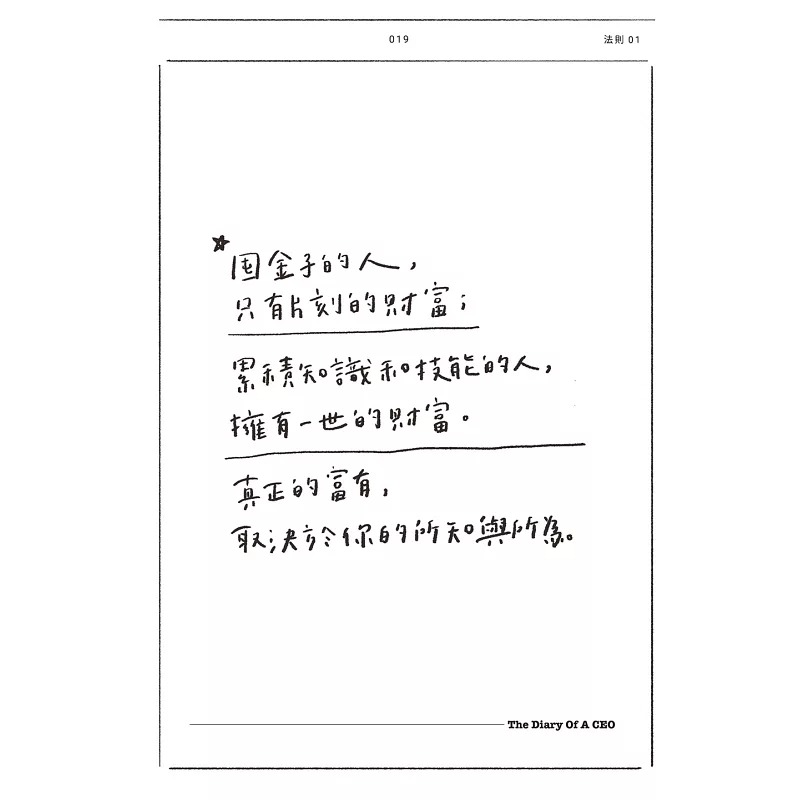 019
法則 01
囤金子的人，
只有片刻的財富；
累積知識和技能的人，
擁有一世的財富。
真正的富有，
取決於你的所知與所為。
The Diary Of A CEO